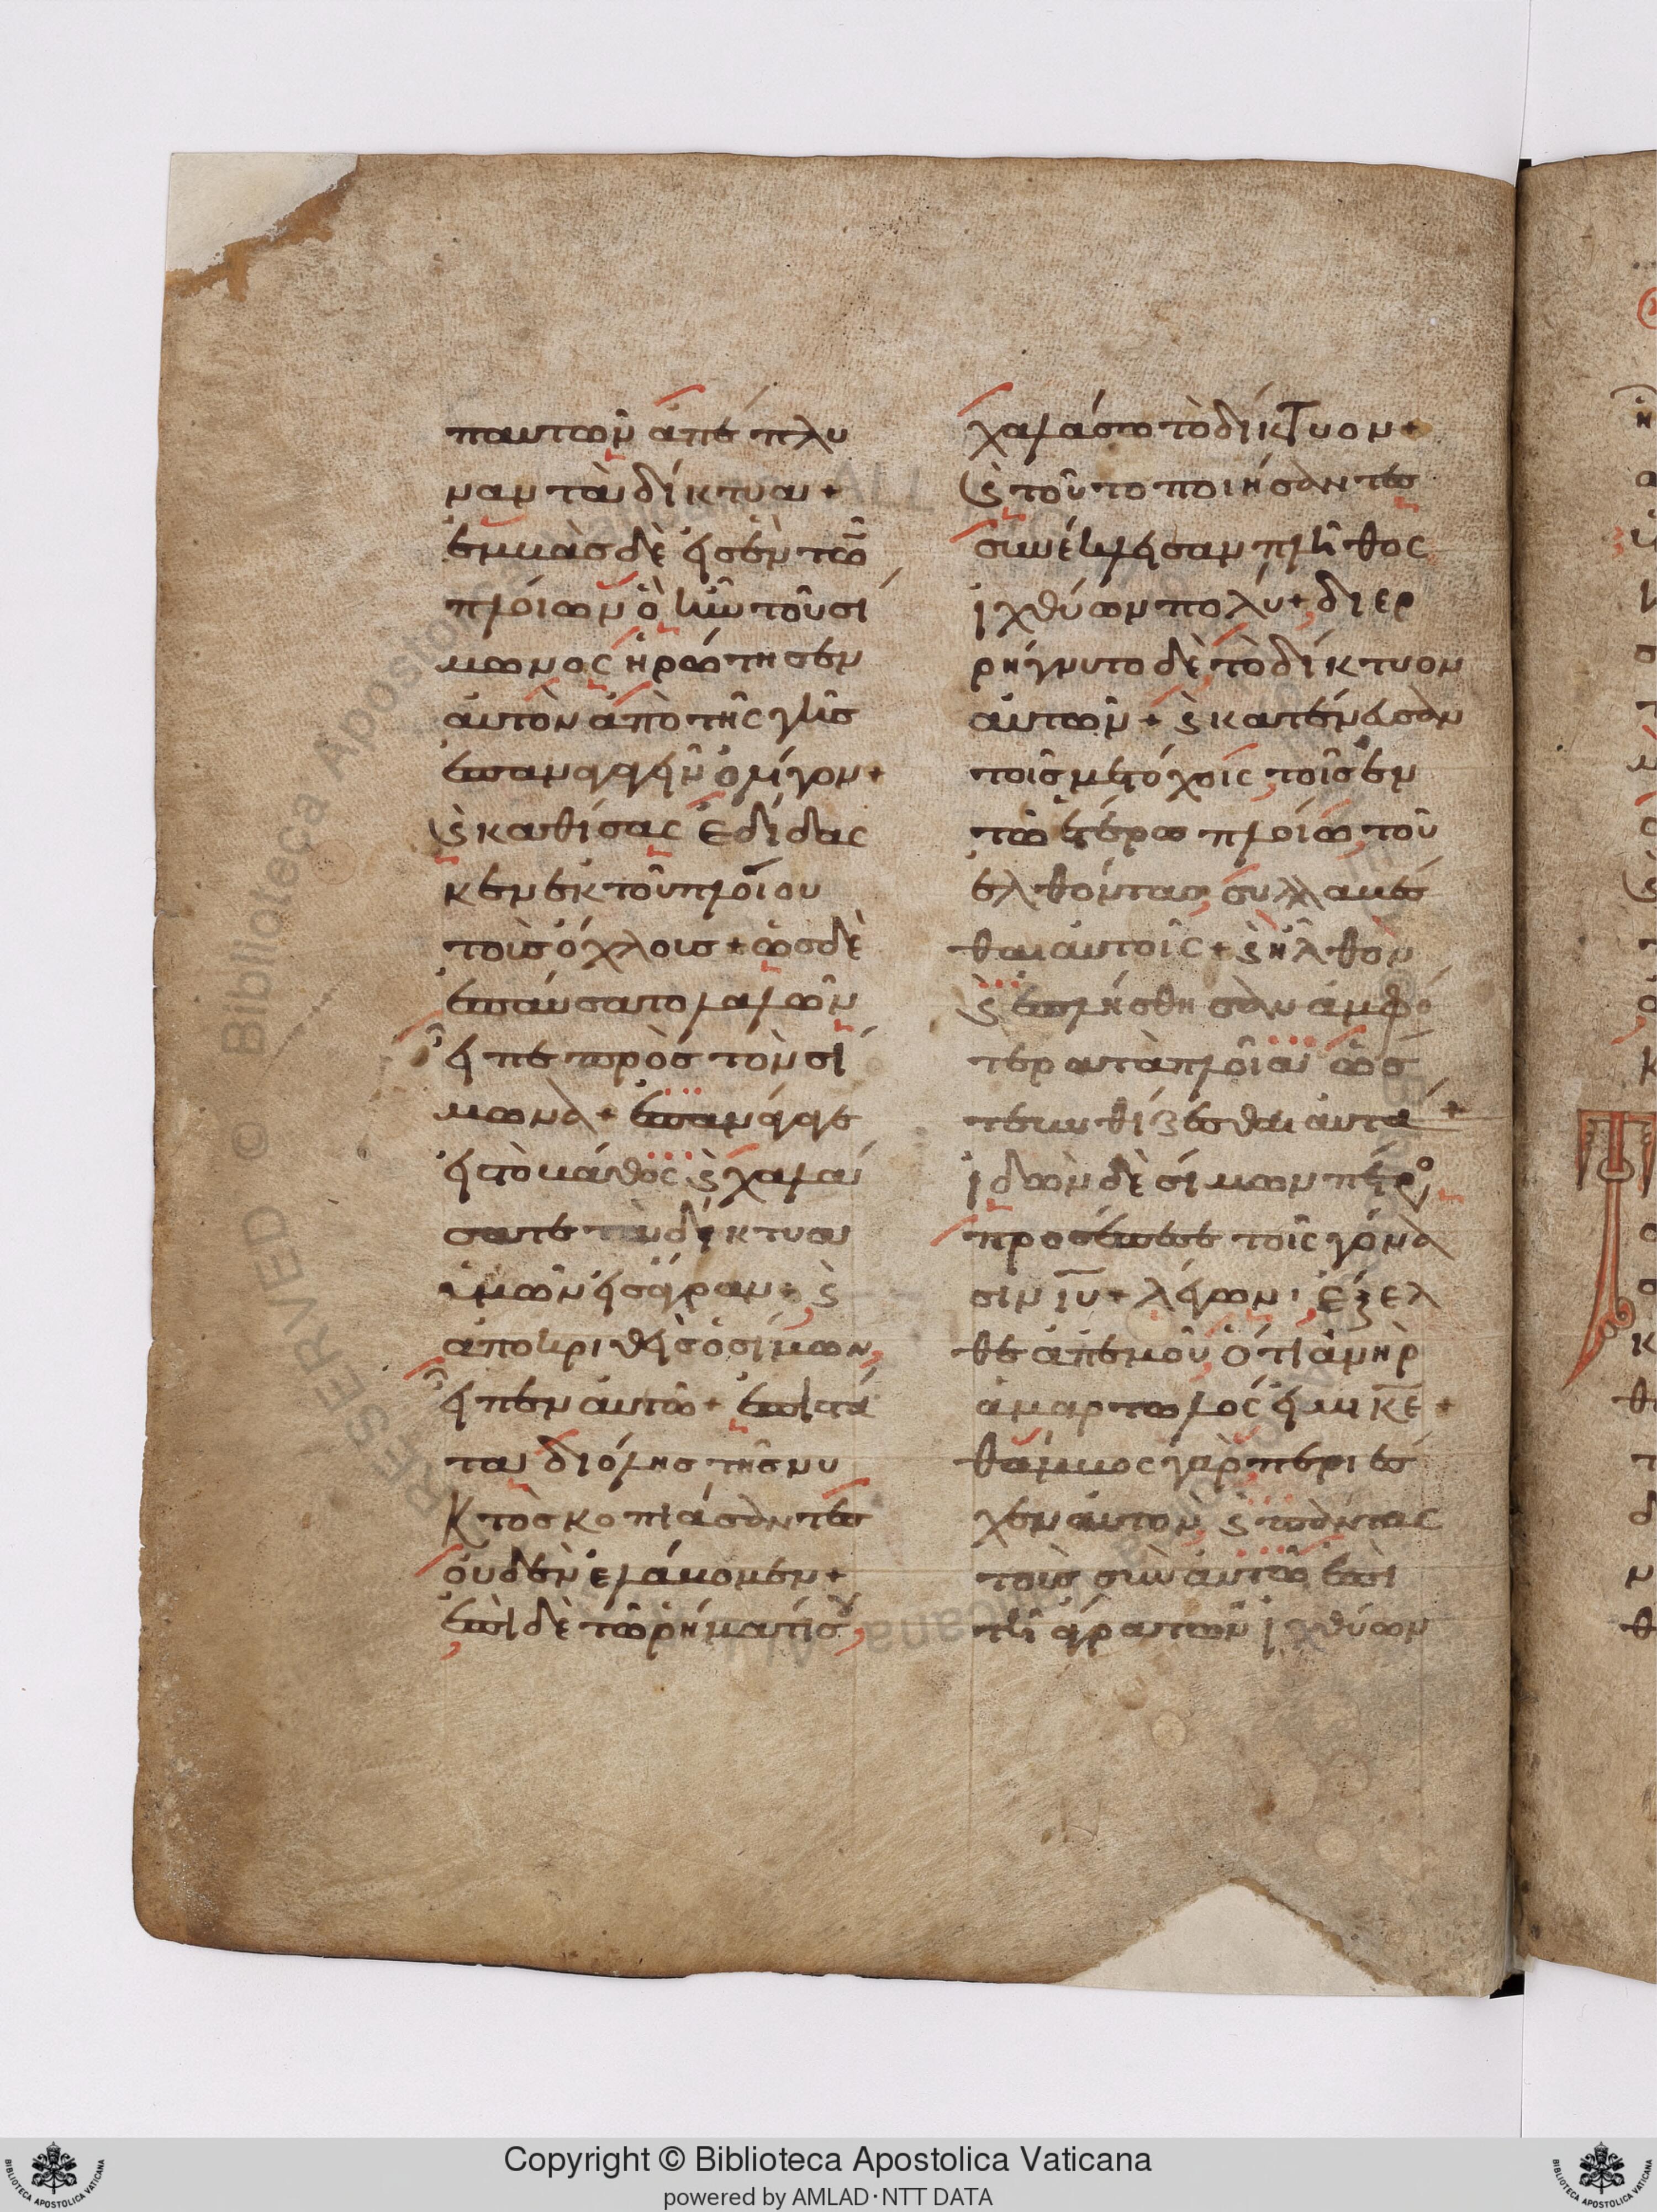 παντων ἀπέπλυ
ναν τὰ δίκτυα +
ἐμβὰς δὲ εἰς ἓν τῶν
πλοίων ὃ ἦν τοῦ σί
μωνος ἠρώτησεν
αὐτὸν ἀπὸ τῆς γῆς
ἐπαναγαγεῖν ὀλίγον +
ϛ καθίσας ἐδίδας
κεν ἐκ τοῦ πλοίου
τοὺς ὄχλους + ὡς δὲ
ἐπαύσατο λαλῶν
εἶπε πρὸς τὸν σί
μωνα + ἐπανάγαγε
εἰς τὸ βάθος ϛ χαλά
σατε τὰ δίκτυα
ὑμῶν εἰς ἄγραν + ϛ
ἀποκριθεὶς ὁ σίμων
εἶπεν αὐτῶ + ἐπιστά
τα δι ὅλης τῆς νυ
κτὸς κοπιάσαντες
οὐδὲν ἐλάβομεν +
ἐπὶ δὲ τῶ ῥήματί σου
χαλάσω τὸ δίκτυον +
ϛ τοῦτο ποιήσαντες
συνέκλεισαν πλῆθος
ἰχθύων πολύ + διερ
ρήγνυτο δὲ τὸ δίκτυον
αὐτῶν + ϛ κατένευσαν
τοῖς μετόχοις τοῖς ἐν
τῶ ἑτέρω πλοίω τοῦ
ἐλθόντας συλλαβέ
σθαι αὐτοῖς + ϛ ἦλθον
ϛ ἐπλήσθησαν ἀμφό
τερα τὰ πλοῖα ὥσ
τε βυθίζεσθαι αὐτά +
ἰδὼν δὲ σίμων πέτρος
προσέπεσε τοῖς γόνα
σιν ιυ + λέγων ἔξελ
θε ἀπ ἐμοῦ ὅτι ἀνὴρ
ἁμαρτωλός εἰμι κε +
θάμβος γὰρ περιέσ
χεν αὐτὸν ϛ πάντας
τοὺς σὺν αὐτῶ ἐπὶ
τῆ ἄγρα τῶν ἰχθύων
Copyright © Biblioteca Apostolica Vaticana
powered by AMLAD·NTT DATA